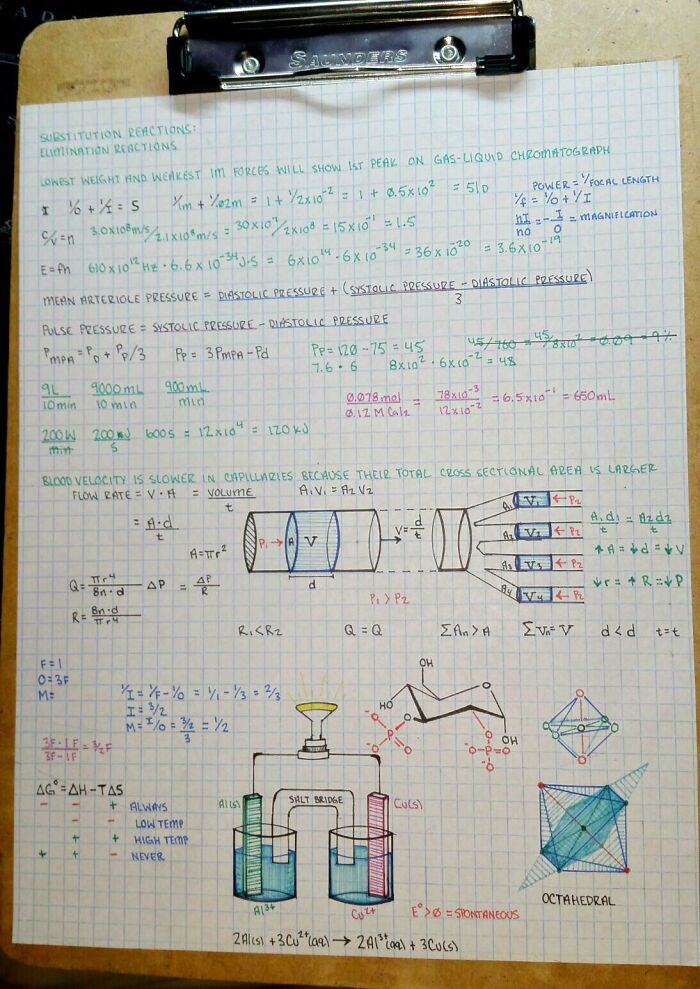 SAUNDERS
SUBSTITUTION REACTIONS:
ELIMINATION REACTIONS
LOWEST WEIGHT AND WEAKEST IM FORCES WILL SHOW 1ST PEAK ON GAS-LIQUID CHROMATOGRAPH
1/O + 1/I = S 1/1m + 1/.02m = 1 + 1/2x10⁻² = 1 + 0.5x10² = 51D
POWER = 1/FOCAL LENGTH
1/f = 1/O + 1/I
hI/hO = -I/O = MAGNIFICATION
C/V = n 3.0x10⁸m/s/2.1x10⁸m/s = 30x10⁷/2x10⁸ = 15x10⁻¹ = 1.5
E = fh 610x10¹²Hz · 6.6x10⁻³⁴J·S = 6x10¹⁴ · 6x10⁻³⁴ = 36x10⁻²⁰ = 3.6x10⁻¹⁹
MEAN ARTERIOLE PRESSURE = DIASTOLIC PRESSURE + (SYSTOLIC PRESSURE - DIASTOLIC PRESSURE)/3
PULSE PRESSURE = SYSTOLIC PRESSURE - DIASTOLIC PRESSURE
PMPA = PD + PP/3 PP = 3PMPA - Pd PP = 120 - 75 = 45 45/760 = 45/8x10² = 0.09 = 9%
7.6 · 6 8x10² · 6x10⁻² = 48
9L/10min 9000mL/10min 900mL/min
0.078mol/0.12 M CaI2 = 78x10⁻³/12x10⁻² = 6.5x10⁻¹ = 650mL
200W/min 200J/S 600S = 12x10⁴ = 120kJ
BLOOD VELOCITY IS SLOWER IN CAPILLARIES BECAUSE THEIR TOTAL CROSS SECTIONAL AREA IS LARGER
FLOW RATE = V · A = VOLUME/t A1V1 = A2V2
= A·d/t
A = πr²
P1 → A V V = d/t
d
P1 > P2
A1 V1 ← P2
A2 V2 ← P2
A3 V3 ← P2
A4 V4 ← P2
A1d1/t = A2d2/t
↑A = ↓d = ↓V
↓r = ↑R = ↓P
Q = πr⁴/8n·d ΔP = ΔP/R
R = 8n·d/πr⁴
R1 < R2 Q = Q ΣAn > A ΣVn = V d < d t = t
F = 1
O = 3F
M =
1/I = 1/F - 1/O = 1/1 - 1/3 = 2/3
I = 3/2
M = I/O = 3/2/3 = 1/2
3F · 1F/3F - 1F = 3/2F
ΔG° = ΔH - TΔS
- - + ALWAYS
- - LOW TEMP
+ + HIGH TEMP
+ + - NEVER
OH
O
HO
OH
O
O⁻
P
O
O⁻
O
O-P-O⁻
O⁻
Al(s) SALT BRIDGE Cu(s)
Al³⁺ Cu²⁺
E° > 0 = SPONTANEOUS
OCTAHEDRAL
2Al(s) + 3Cu²⁺(aq) → 2Al³⁺(aq) + 3Cu(s)